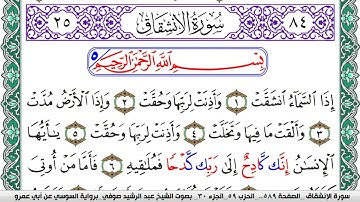 ٨٤ سُورَةُ الِانْشِقَاقِ ٢٥
بِسْمِ اللَّهِ الرَّحْمَٰنِ الرَّحِيمِ ٥
إِذَا السَّمَآءُ انشَقَّتْ ١ وَأَذِنَتْ لِرَبِّهَا وَحُقَّتْ ٢ وَإِذَا الْأَرْضُ مُدَّتْ
٣ وَأَلْقَتْ مَا فِيهَا وَتَخَلَّتْ ٤ وَأَذِنَتْ لِرَبِّهَا وَحُقَّتْ ٥ يَٰٓأَيُّهَا
الْإِنسَٰنُ إِنَّكَ كَادِحٌ إِلَىٰ رَبِّكَ كَدْحًا فَمُلَٰقِيهِ ٦ فَأَمَّا مَنْ أُوتِيَ
سورة الإنشقاق، الصفحة ٥٨٩، الحزب ٥٩ الجزء ٣٠ بصوت الشيخ عبد الرشيد صوفي برواية السوسي عن أبي عمرو